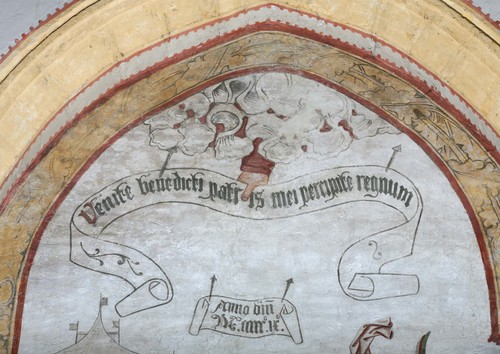 Venite benedicti patris mei percipite regnum
Anno dm